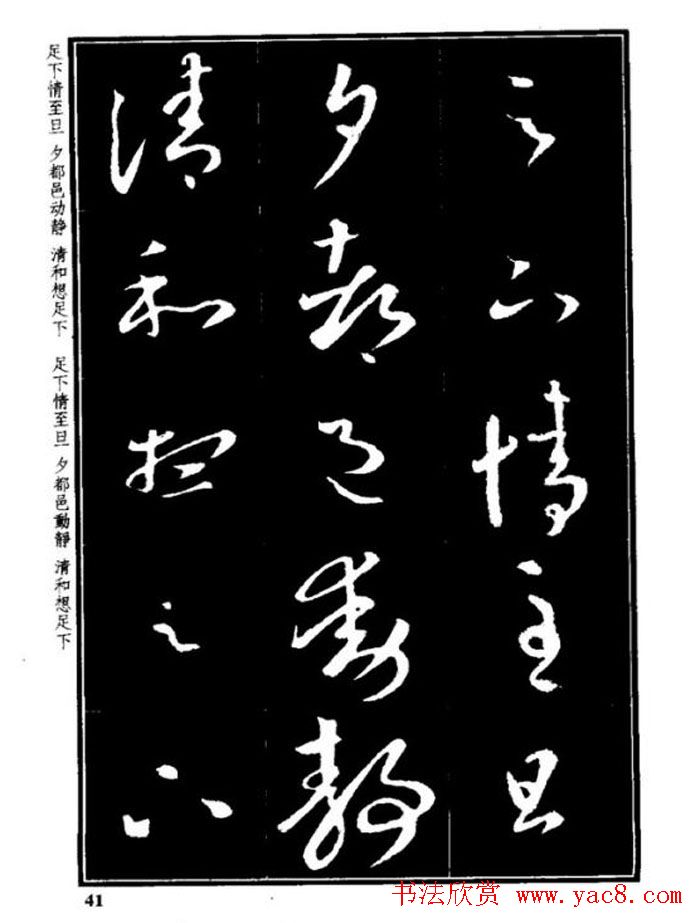 足下情至旦
夕都邑動靜
清和想足下
足下情至旦 夕都邑动静 清和想足下 足下情至旦 夕都邑動靜 清和想足下
41
书法欣赏 www.yac8.com